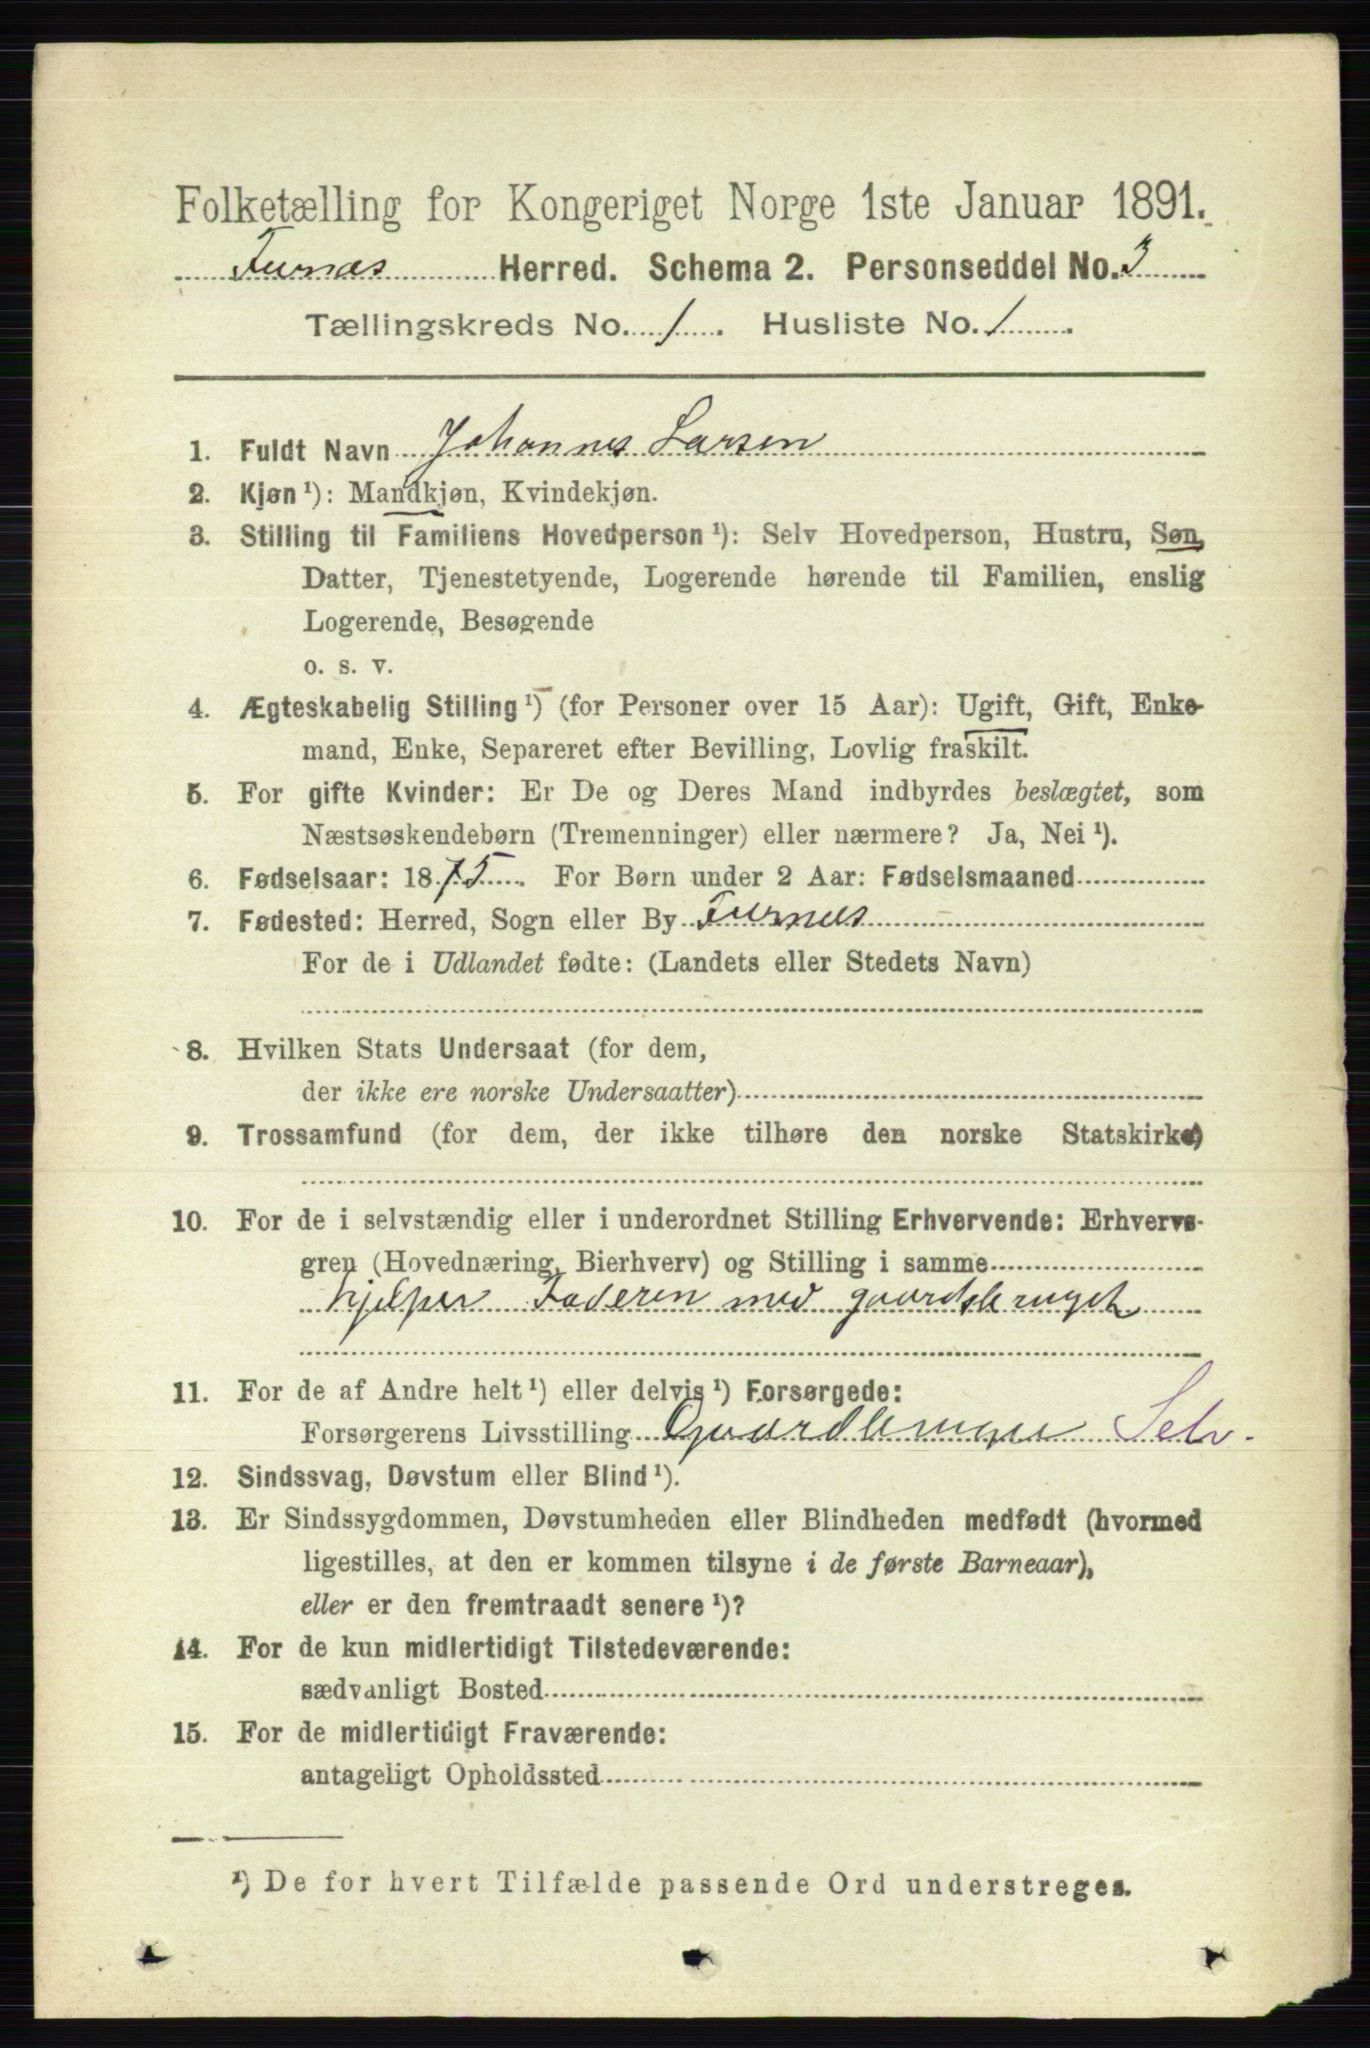 Folketælling for Kongeriget Norge 1ste Januar 1891.
Furnæs Herred. Schema 2. Personseddel No. 3
Tællingskreds No. 1. Husliste No. 1.
1. Fuldt Navn Johannes Larsen
2. Kjøn ¹): Mandkjøn, Kvindekjøn.
3. Stilling til Familiens Hovedperson ¹): Selv Hovedperson, Hustru, Søn,
Datter, Tjenestetyende, Logerende hørende til Familien, enslig
Logerende, Besøgende
o. s. v.
4. Ægteskabelig Stilling ¹) (for Personer over 15 Aar): Ugift, Gift, Enke-
mand, Enke, Separeret efter Bevilling, Lovlig fraskilt.
5. For gifte Kvinder: Er De og Deres Mand indbyrdes beslægtet, som
Næstsøskendebørn (Tremenninger) eller nærmere? Ja, Nei ¹).
6. Fødselsaar: 1875. For Børn under 2 Aar: Fødselsmaaned
7. Fødested: Herred, Sogn eller By Furnæs
For de i Udlandet fødte: (Landets eller Stedets Navn)
8. Hvilken Stats Undersaat (for dem,
der ikke ere norske Undersaatter)
9. Trossamfund (for dem, der ikke tilhøre den norske Statskirke)
10. For de i selvstændig eller i underordnet Stilling Erhvervende: Erhvervs-
gren (Hovednæring, Bierhverv) og Stilling i samme
hjelper Faderen med gaardsbruget
11. For de af Andre helt ¹) eller delvis ¹) Forsørgede:
Forsørgerens Livsstilling Gaardbruger Selv.
12. Sindssvag, Døvstum eller Blind ¹).
13. Er Sindssygdommen, Døvstumheden eller Blindheden medfødt (hvormed
ligestilles, at den er kommen tilsyne i de første Barneaar),
eller er den fremtraadt senere ¹)?
14. For de kun midlertidigt Tilstedeværende:
sædvanligt Bosted
15. For de midlertidigt Fraværende:
antageligt Opholdssted
¹) De for hvert Tilfælde passende Ord understreges.